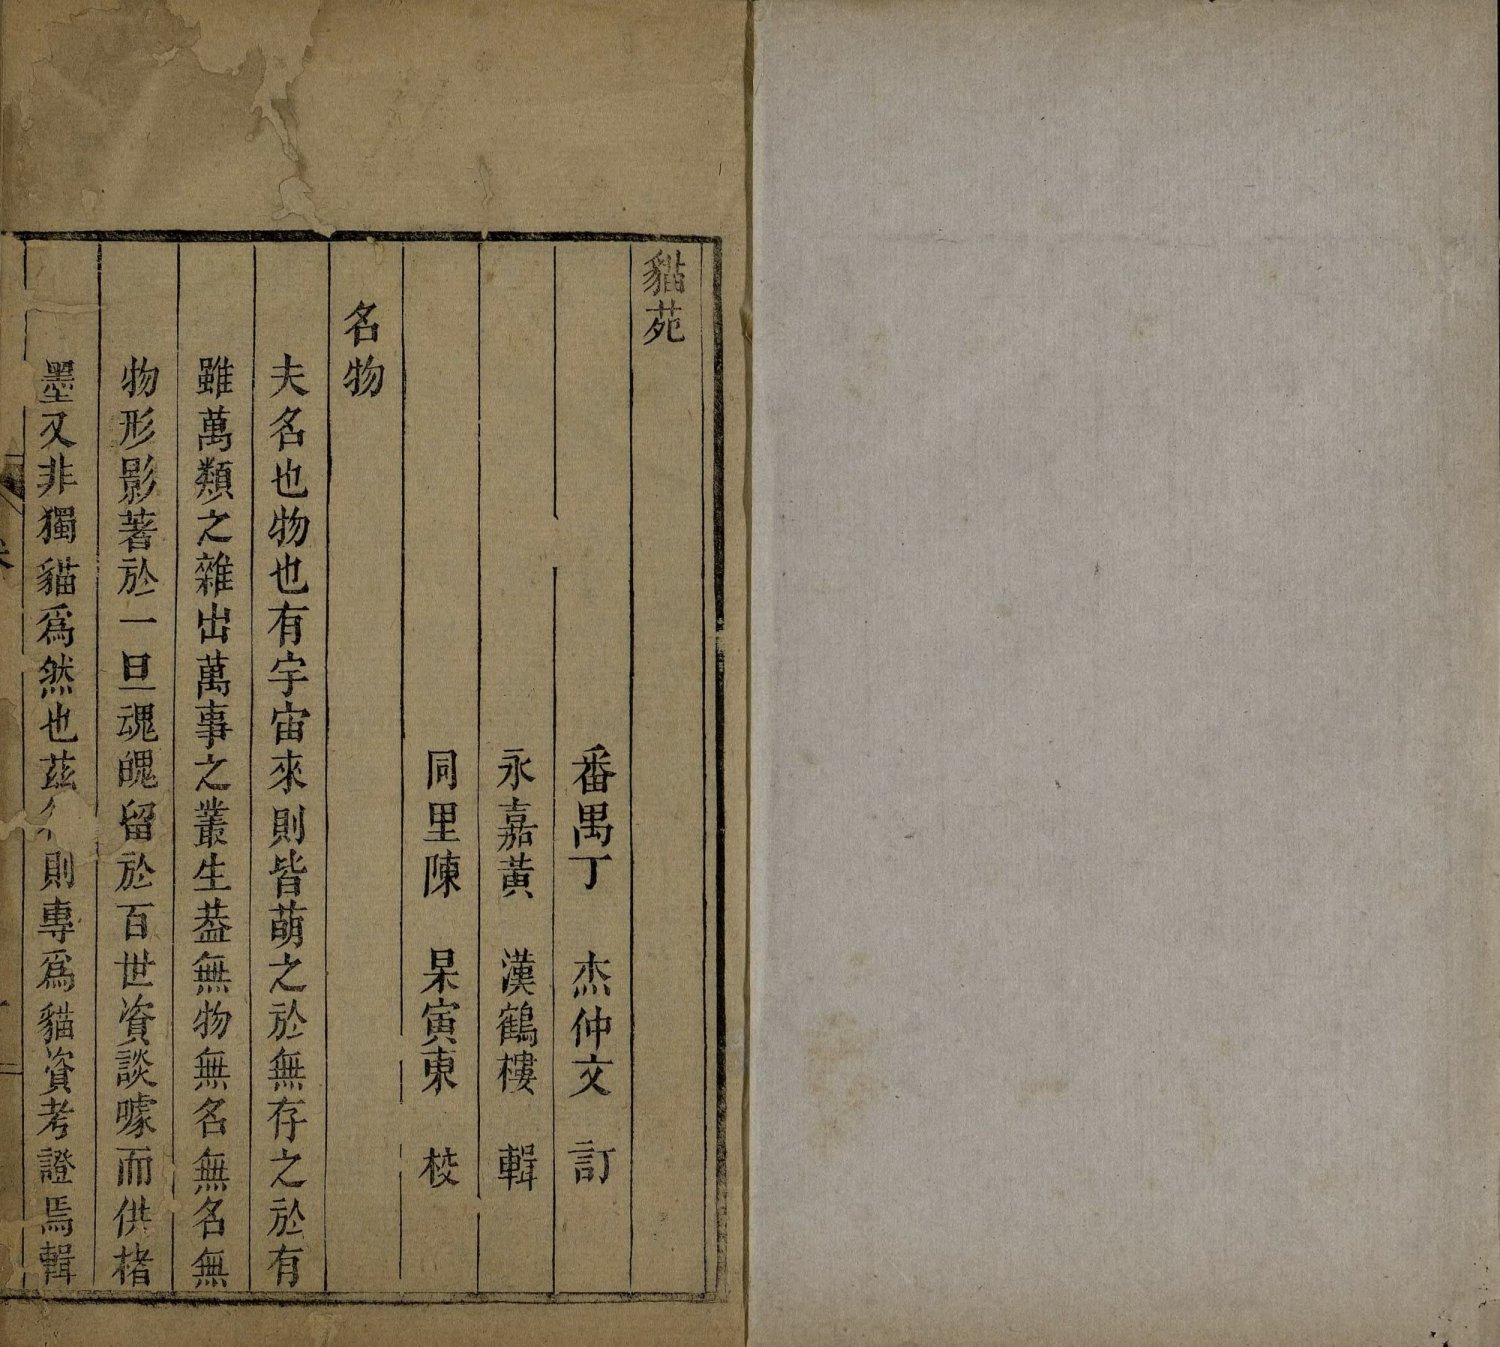 貓苑
番禺丁 杰仲文 訂
永嘉黃 漢鶴樓 輯
同里陳 杲寅東 校
名物
夫名也物也有宇宙來則皆萌之於無存之於有
雖萬類之雜出萬事之叢生葢無物無名無名無
物形影著於一旦魂魄留於百世資談噱而供楮
墨又非獨貓爲然也茲則專爲貓資考證焉輯